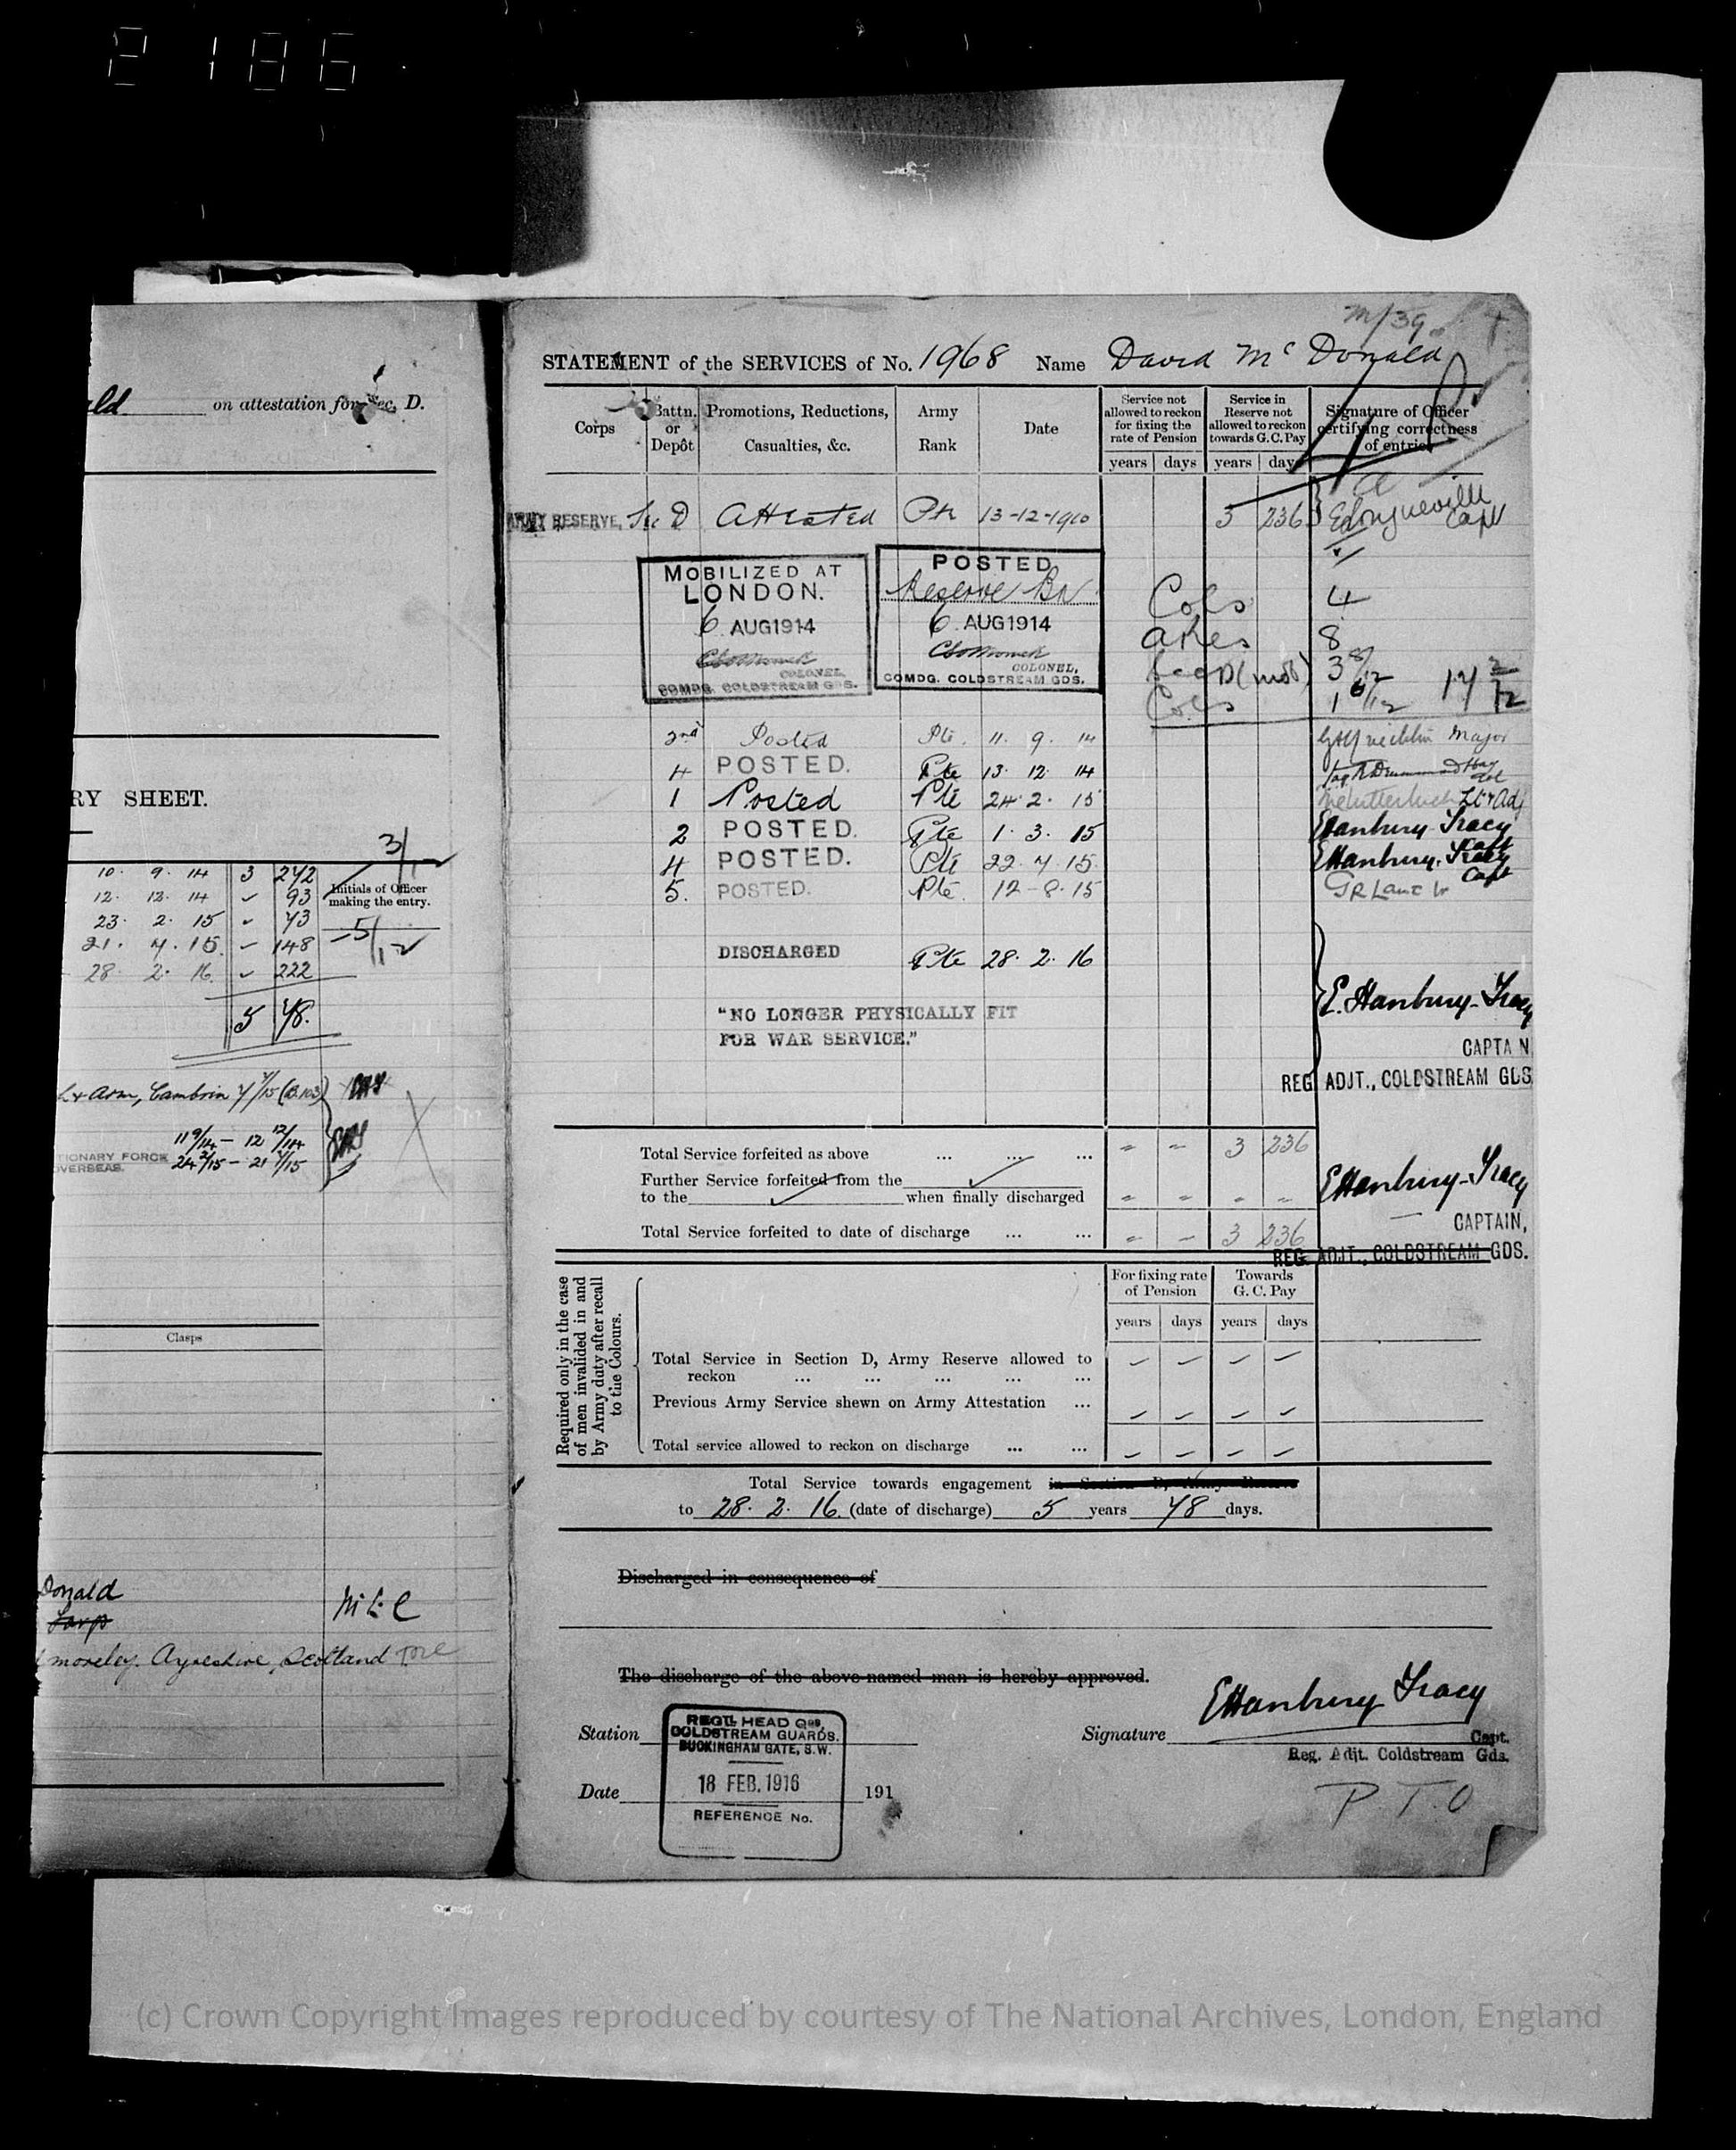 2186
ald on attestation for Sec. D.
RY SHEET.
3/12
10. 9. 14 3 242
Initials of Officer
making the entry.
12. 12. 14 93
23. 2. 15 73
21. 7. 15. 148
5/12
28. 2. 16. 222
5 78.
& Arm, Cambrin
11 9/14 – 12 12/14
TIONARY FORCE
OVERSEAS.
24 2/15 – 21 7/15
Clasps
Donald
M.L.C
Ayreshire, Scotland
M/39
STATEMENT of the SERVICES of No. 1968 Name David McDonald
Corps
Battn. or Depôt
Promotions, Reductions, Casualties, &c.
Army Rank
Date
Service not allowed to reckon for fixing the rate of Pension
Service in Reserve not allowed to reckon towards G. C. Pay
Signature of Officer certifying correctness of entries
years days years days
ARMY RESERVE, Sec D Attested Pte 13-12-1910 3 236 Longueville Capt
MOBILIZED AT
LONDON.
6 AUG 1914
COLONEL,
COMDG. COLDSTREAM GDS.
POSTED
Reserve Bn
6 AUG 1914
COLONEL,
COMDG. COLDSTREAM GDS.
Cols 4
ARes 8
Sec D (mob) 3 8/12
Cols 1 6/12 17 2/12
2nd Posted Pte. 11. 9. 14 Major
4 POSTED. Pte 13. 12. 14
1 Posted Pte 24. 2. 15 Lt & Adj
2 POSTED. Pte 1. 3. 15 EHanbury-Tracy Capt
4 POSTED. Pte 22. 7. 15 EHanbury-Tracy Capt
5. POSTED. Pte. 12-8-15 GR Lane
DISCHARGED Pte 28. 2. 16
E. Hanbury-Tracy
"NO LONGER PHYSICALLY FIT
FOR WAR SERVICE."
CAPTA N
REG ADJT., COLDSTREAM GDS
Total Service forfeited as above ... ... ... 3 236
Further Service forfeited from the
to the when finally discharged
EHanbury-Tracy
CAPTAIN,
Total Service forfeited to date of discharge ... ... 3 236
REG. ADJT., COLDSTREAM GDS.
Required only in the case of men invalided in and by Army duty after recall to the Colours.
For fixing rate of Pension
Towards G. C. Pay
years days years days
Total Service in Section D, Army Reserve allowed to
reckon ... ... ... ... ...
Previous Army Service shewn on Army Attestation ...
Total service allowed to reckon on discharge ... ...
Total Service towards engagement in Section D, Army Reserve
to 28. 2. 16. (date of discharge) 5 years 78 days.
Discharged in consequence of
The discharge of the above-named man is hereby approved.
Station
REGTL HEAD Qrs,
COLDSTREAM GUARDS.
BUCKINGHAM GATE, S.W.
18 FEB. 1916
REFERENCE No.
Signature EHanbury Tracy
Capt.
Reg. Adjt. Coldstream Gds.
Date 191
P.T.O
(c) Crown Copyright Images reproduced by courtesy of The National Archives, London, England